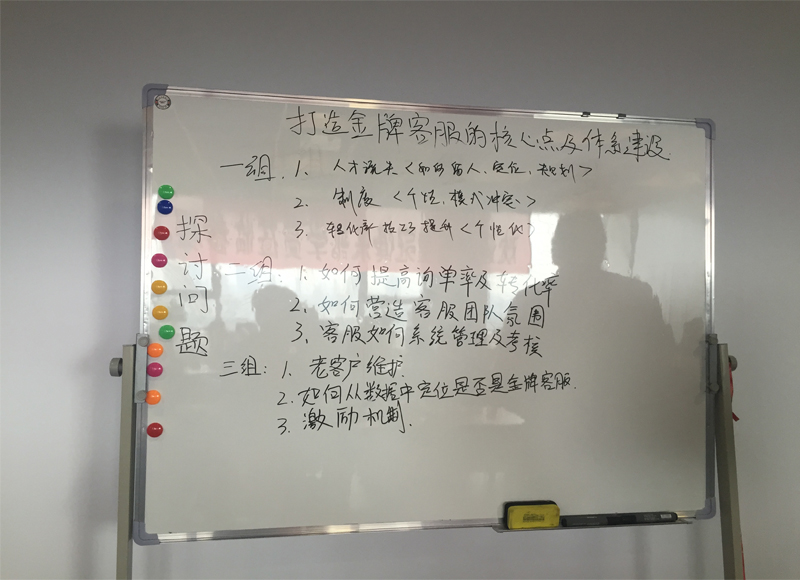 打造金牌客服的核心点及体系建设
探讨问题
一组:1、人才流失<如何留人、定位、规划>
2、制度<个性、模式冲突>
3、转化率技巧提升<个性化>
二组:1、如何提高询单率及转化率
2、如何营造客服团队氛围
3、客服如何系统管理及考核
三组:1、老客户维护
2.如何从数据中定位是否是金牌客服.
3.激励机制.